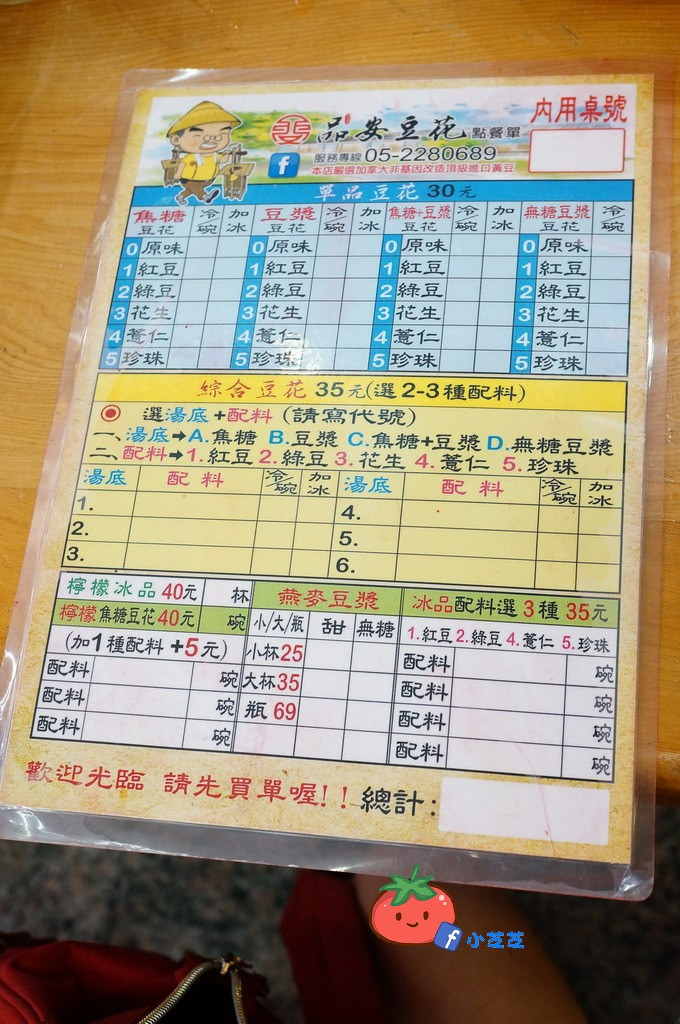 內用桌號
品安豆花 點餐單
服務專線 05-2280689
本店嚴選加拿大非基因改造頂級進口黃豆
單品豆花 30元
焦糖豆花 冷/碗 加冰 豆漿豆花 冷/碗 加冰 焦糖+豆漿豆花 冷/碗 加冰 無糖豆花 冷/碗
0 原味 0 原味 0 原味 0 原味
1 紅豆 1 紅豆 1 紅豆 1 紅豆
2 綠豆 2 綠豆 2 綠豆 2 綠豆
3 花生 3 花生 3 花生 3 花生
4 薏仁 4 薏仁 4 薏仁 4 薏仁
5 珍珠 5 珍珠 5 珍珠 5 珍珠
綜合豆花 35元(選2-3種配料)
選湯底+配料 (請寫代號)
一、湯底➔A.焦糖 B.豆漿 C.焦糖+豆漿 D.無糖豆漿
二、配料➔1.紅豆 2.綠豆 3.花生 4.薏仁 5.珍珠
湯底 配料 冷/碗 加冰 湯底 配料 冷/碗 加冰
1. 4.
2. 5.
3. 6.
檸檬冰品 40元 杯
檸檬焦糖豆花40元 碗
(加1種配料+5元)
配料 碗
配料 碗
配料 碗
燕麥豆漿
小/大/瓶 甜 無糖
小杯25
大杯35
瓶 69
冰品配料選3種35元
1.紅豆 2.綠豆 4.薏仁 5.珍珠
配料 碗
配料 碗
配料 碗
配料 碗
歡迎光臨 請先買單喔!! 總計:
小芝芝